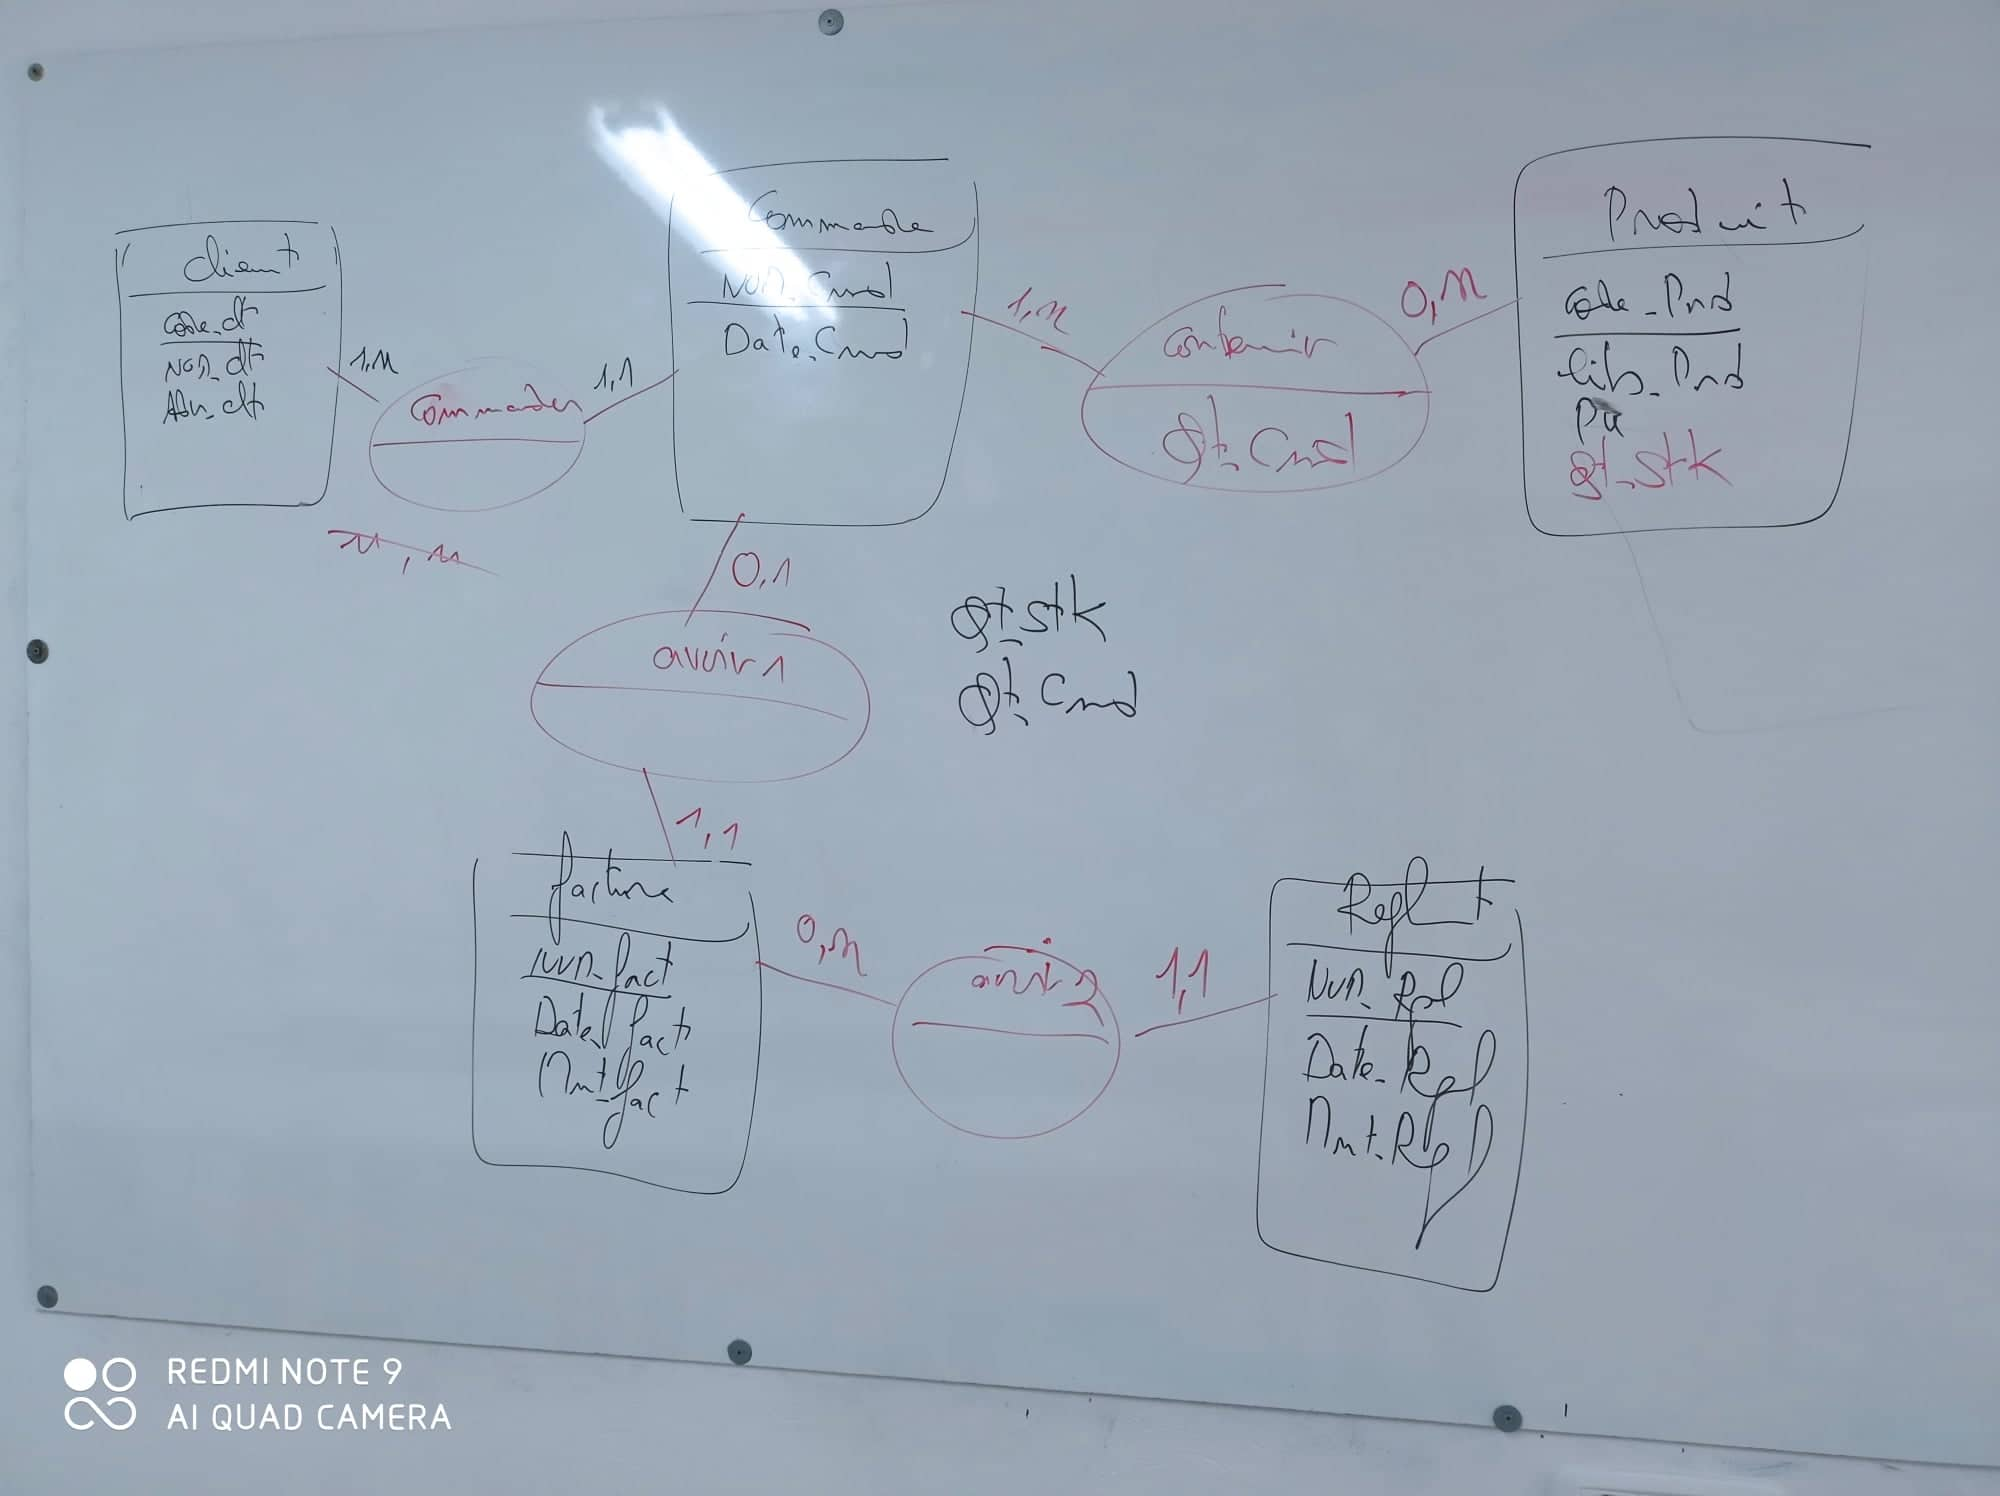 Client
Code_clt
Nom_clt
Adr_clt
1,n
Commander
1,1
n,n
Commande
Num_Cmd
Date_Cmd
1,n
contenir
Qt_Cmd
0,n
Produit
Code_Prd
lib_Prd
PU
Qt_stk
0,1
avoir 1
1,1
Qt_stk
Qt_Cmd
facture
Num_fact
Date_fact
Mnt_fact
0,n
avoir 2
1,1
Reglt
Num_Rgl
Date_Rgl
Mnt_Rgl
REDMI NOTE 9
AI QUAD CAMERA